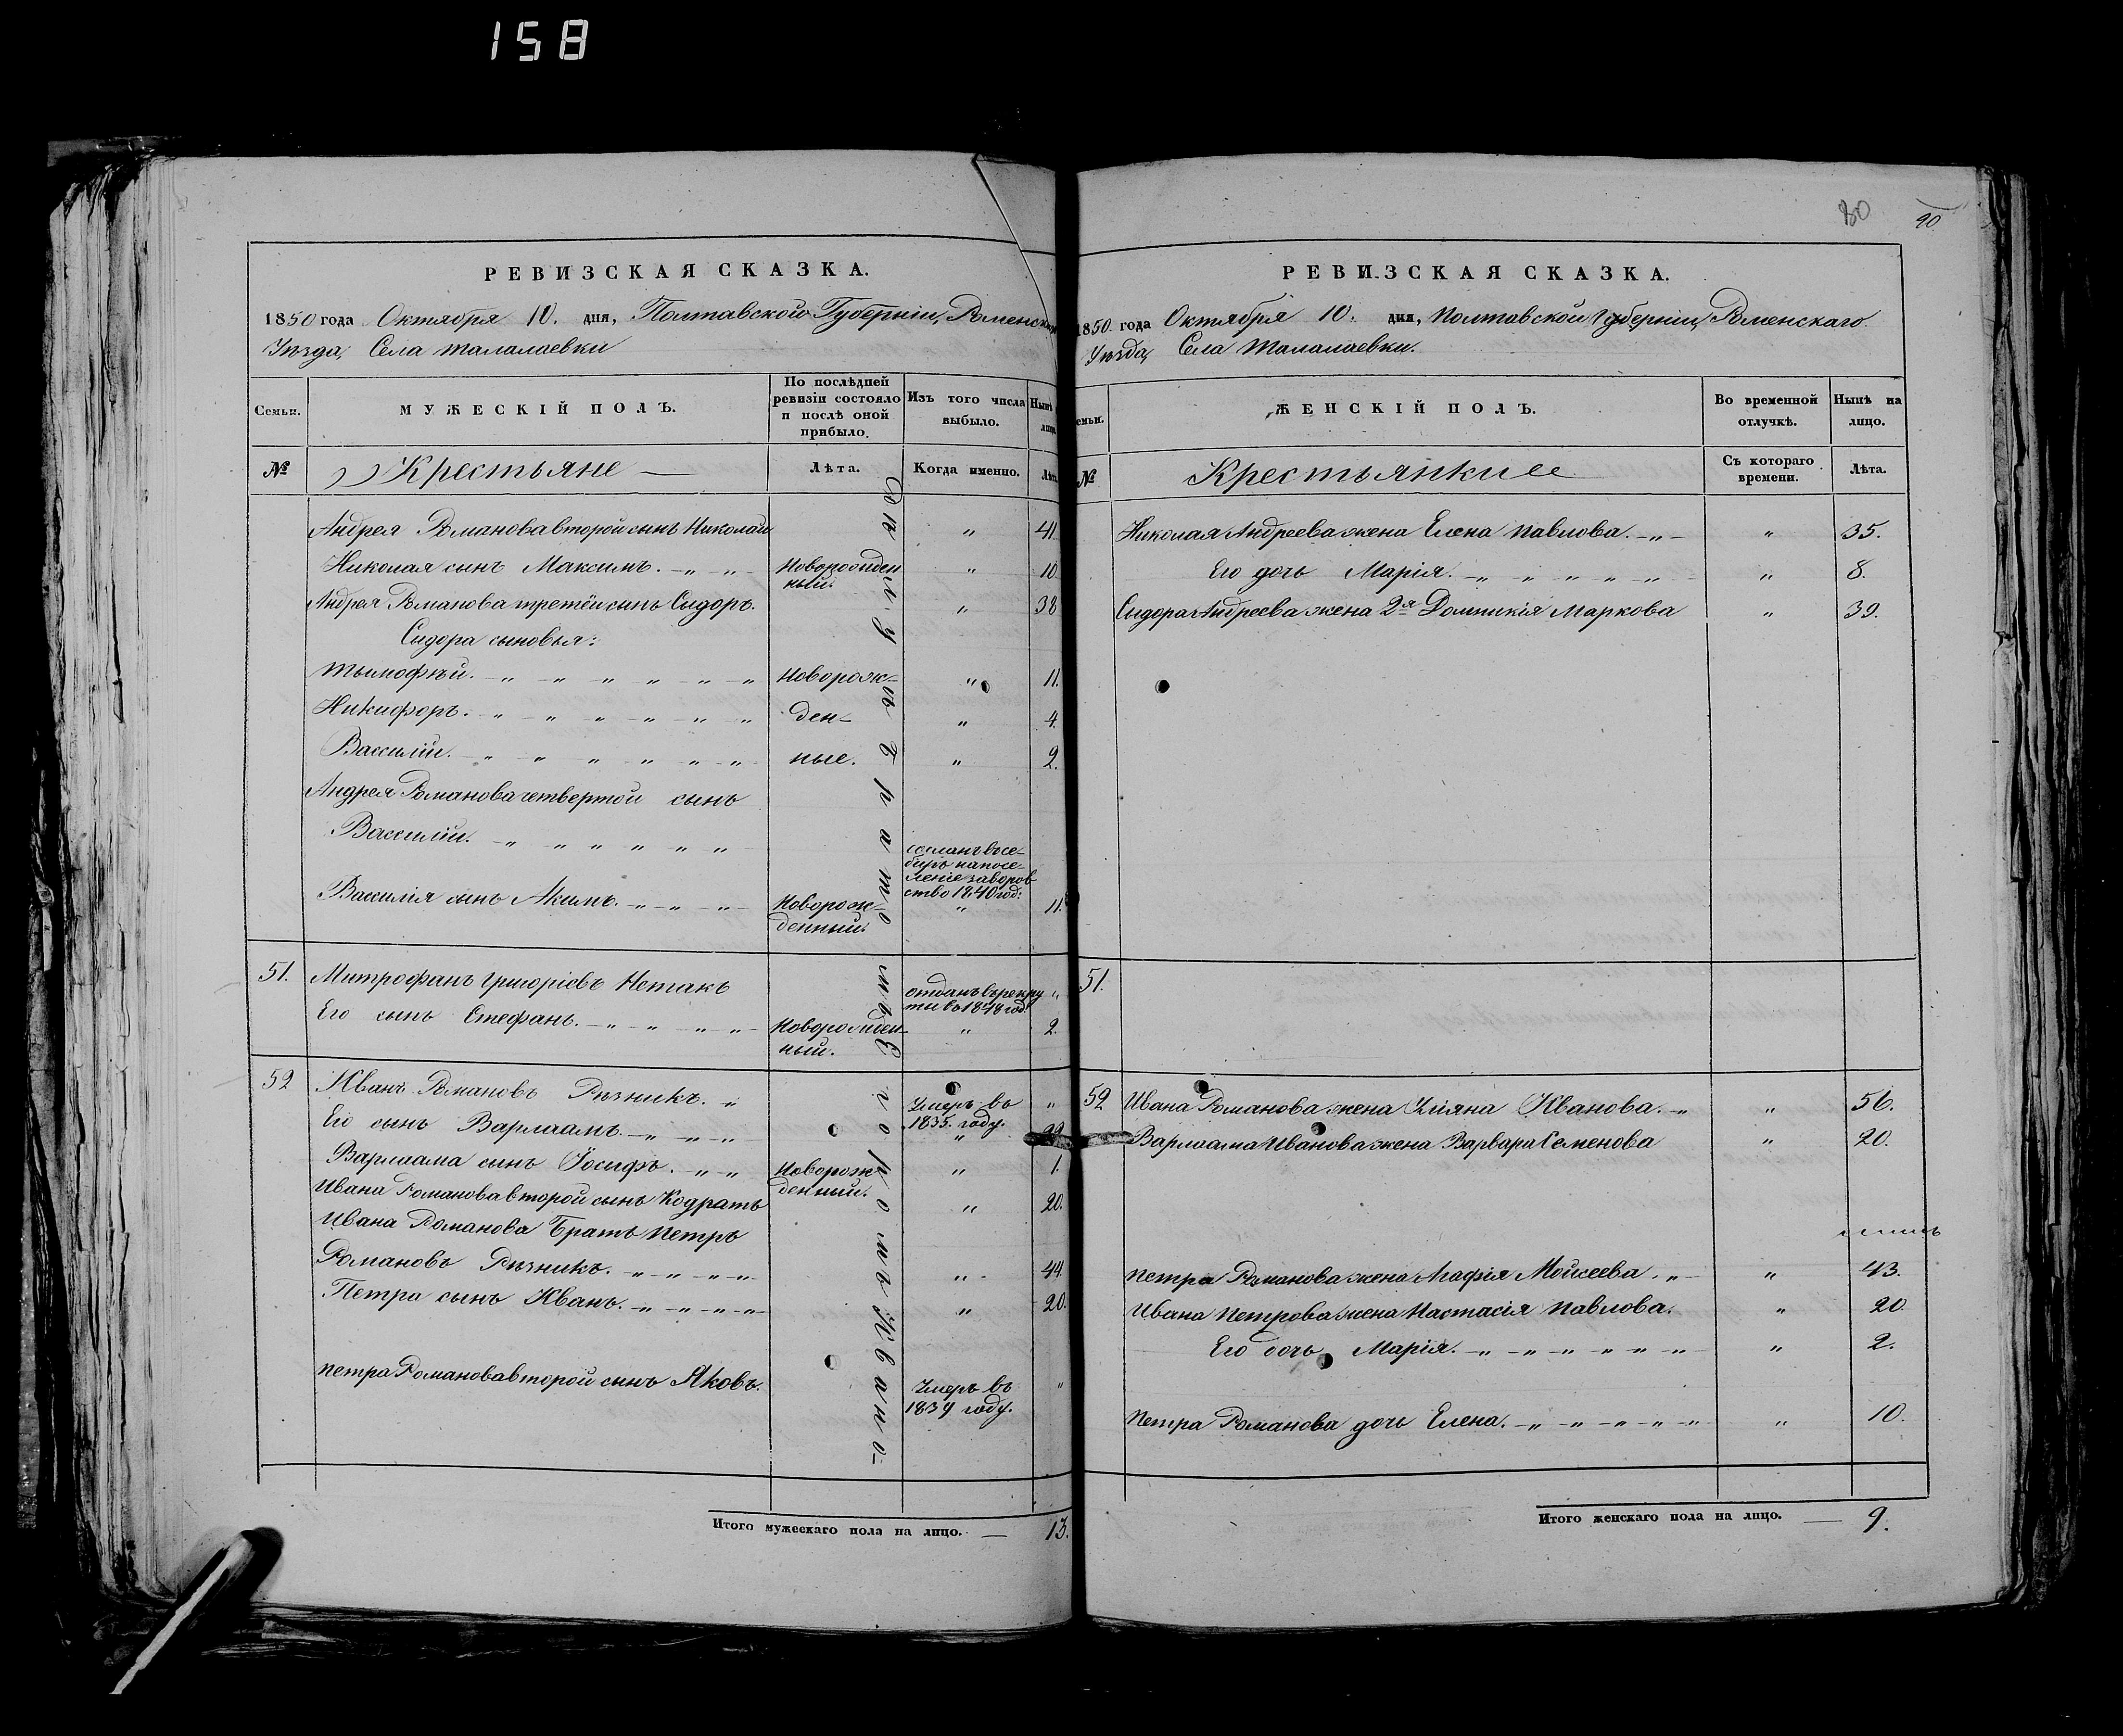 158
РЕВИЗСКАЯ СКАЗКА.
1850 года Октября 10. дня, Полтавской Губерніи, Роменскаго
Уѣзда, Села Талалаевки
Семьи.
МУЖЕСКІЙ ПОЛЪ.
По послѣдней ревизіи состояло и послѣ оной прибыло.
Изъ того числа выбыло.
Нынѣ на лицо.
№
Крестьяне
Лѣта.
Когда именно.
Лѣта.
Андрея Романова второй сынъ Николай " 41.
Николая сынъ Максимъ. Новорожденный. " 10.
Андрея Романова третей сынъ Сидоръ. " 38
Сидора сыновья:
Тымофѣй. Новорож- " 11.
Никифоръ. ден- " 4.
Василій. ные. " 2.
Андрея Романова четвертой сынъ
Василій. сосланъ въ Сибирь на поселеніе за воровство 1840 год:
Василія сынъ Акимъ. Новорожденный. " 11.
51. Митрофанъ Григоріевъ Нетакъ отданъ въ рекруты въ 1848 год: "
Его сынъ Стефанъ. Новорожденный. " 2.
52 Иванъ Романовъ Рѣзникъ. Умеръ въ 1835. году. "
Его сынъ Варлаамъ. "
Варлаама сынъ Іосифъ. Новорожденный. " 1.
Ивана Романова второй сынъ Кодратъ " 20.
Ивана Романова Братъ Петръ
Романовъ Рѣзникъ. " 44.
Петра сынъ Иванъ. " 20.
Петра Романова второй сынъ Яковъ. Умеръ въ 1839 году. "
Итого мужескаго пола на лицо. — 13.
80
90
РЕВИЗСКАЯ СКАЗКА.
1850. года Октября 10. дня, Полтавской Губерніи, Роменскаго
Уѣзда, Села Талалаевки.
Семьи.
ЖЕНСКІЙ ПОЛЪ.
Во временной отлучкѣ.
Нынѣ на лицо.
№
Крестьянки
Съ котораго времени.
Лѣта.
Николая Андреева жена Елена Павлова. " 35.
Его дочь Марія. " 8.
Сидора Андреева жена 2я Домникія Маркова " 39.
51.
52 Ивана Романова жена Уліяна Иванова. " 56.
Варлаама Иванова жена Варвара Семенова " 20.
Петра Романова жена Агафія Моисеева. " 43.
Ивана Петрова жена Настасія Павлова. " 20.
Его дочь Марія. " 2.
Петра Романова дочь Елена. " 10.
Итого женскаго пола на лицо. — 9.